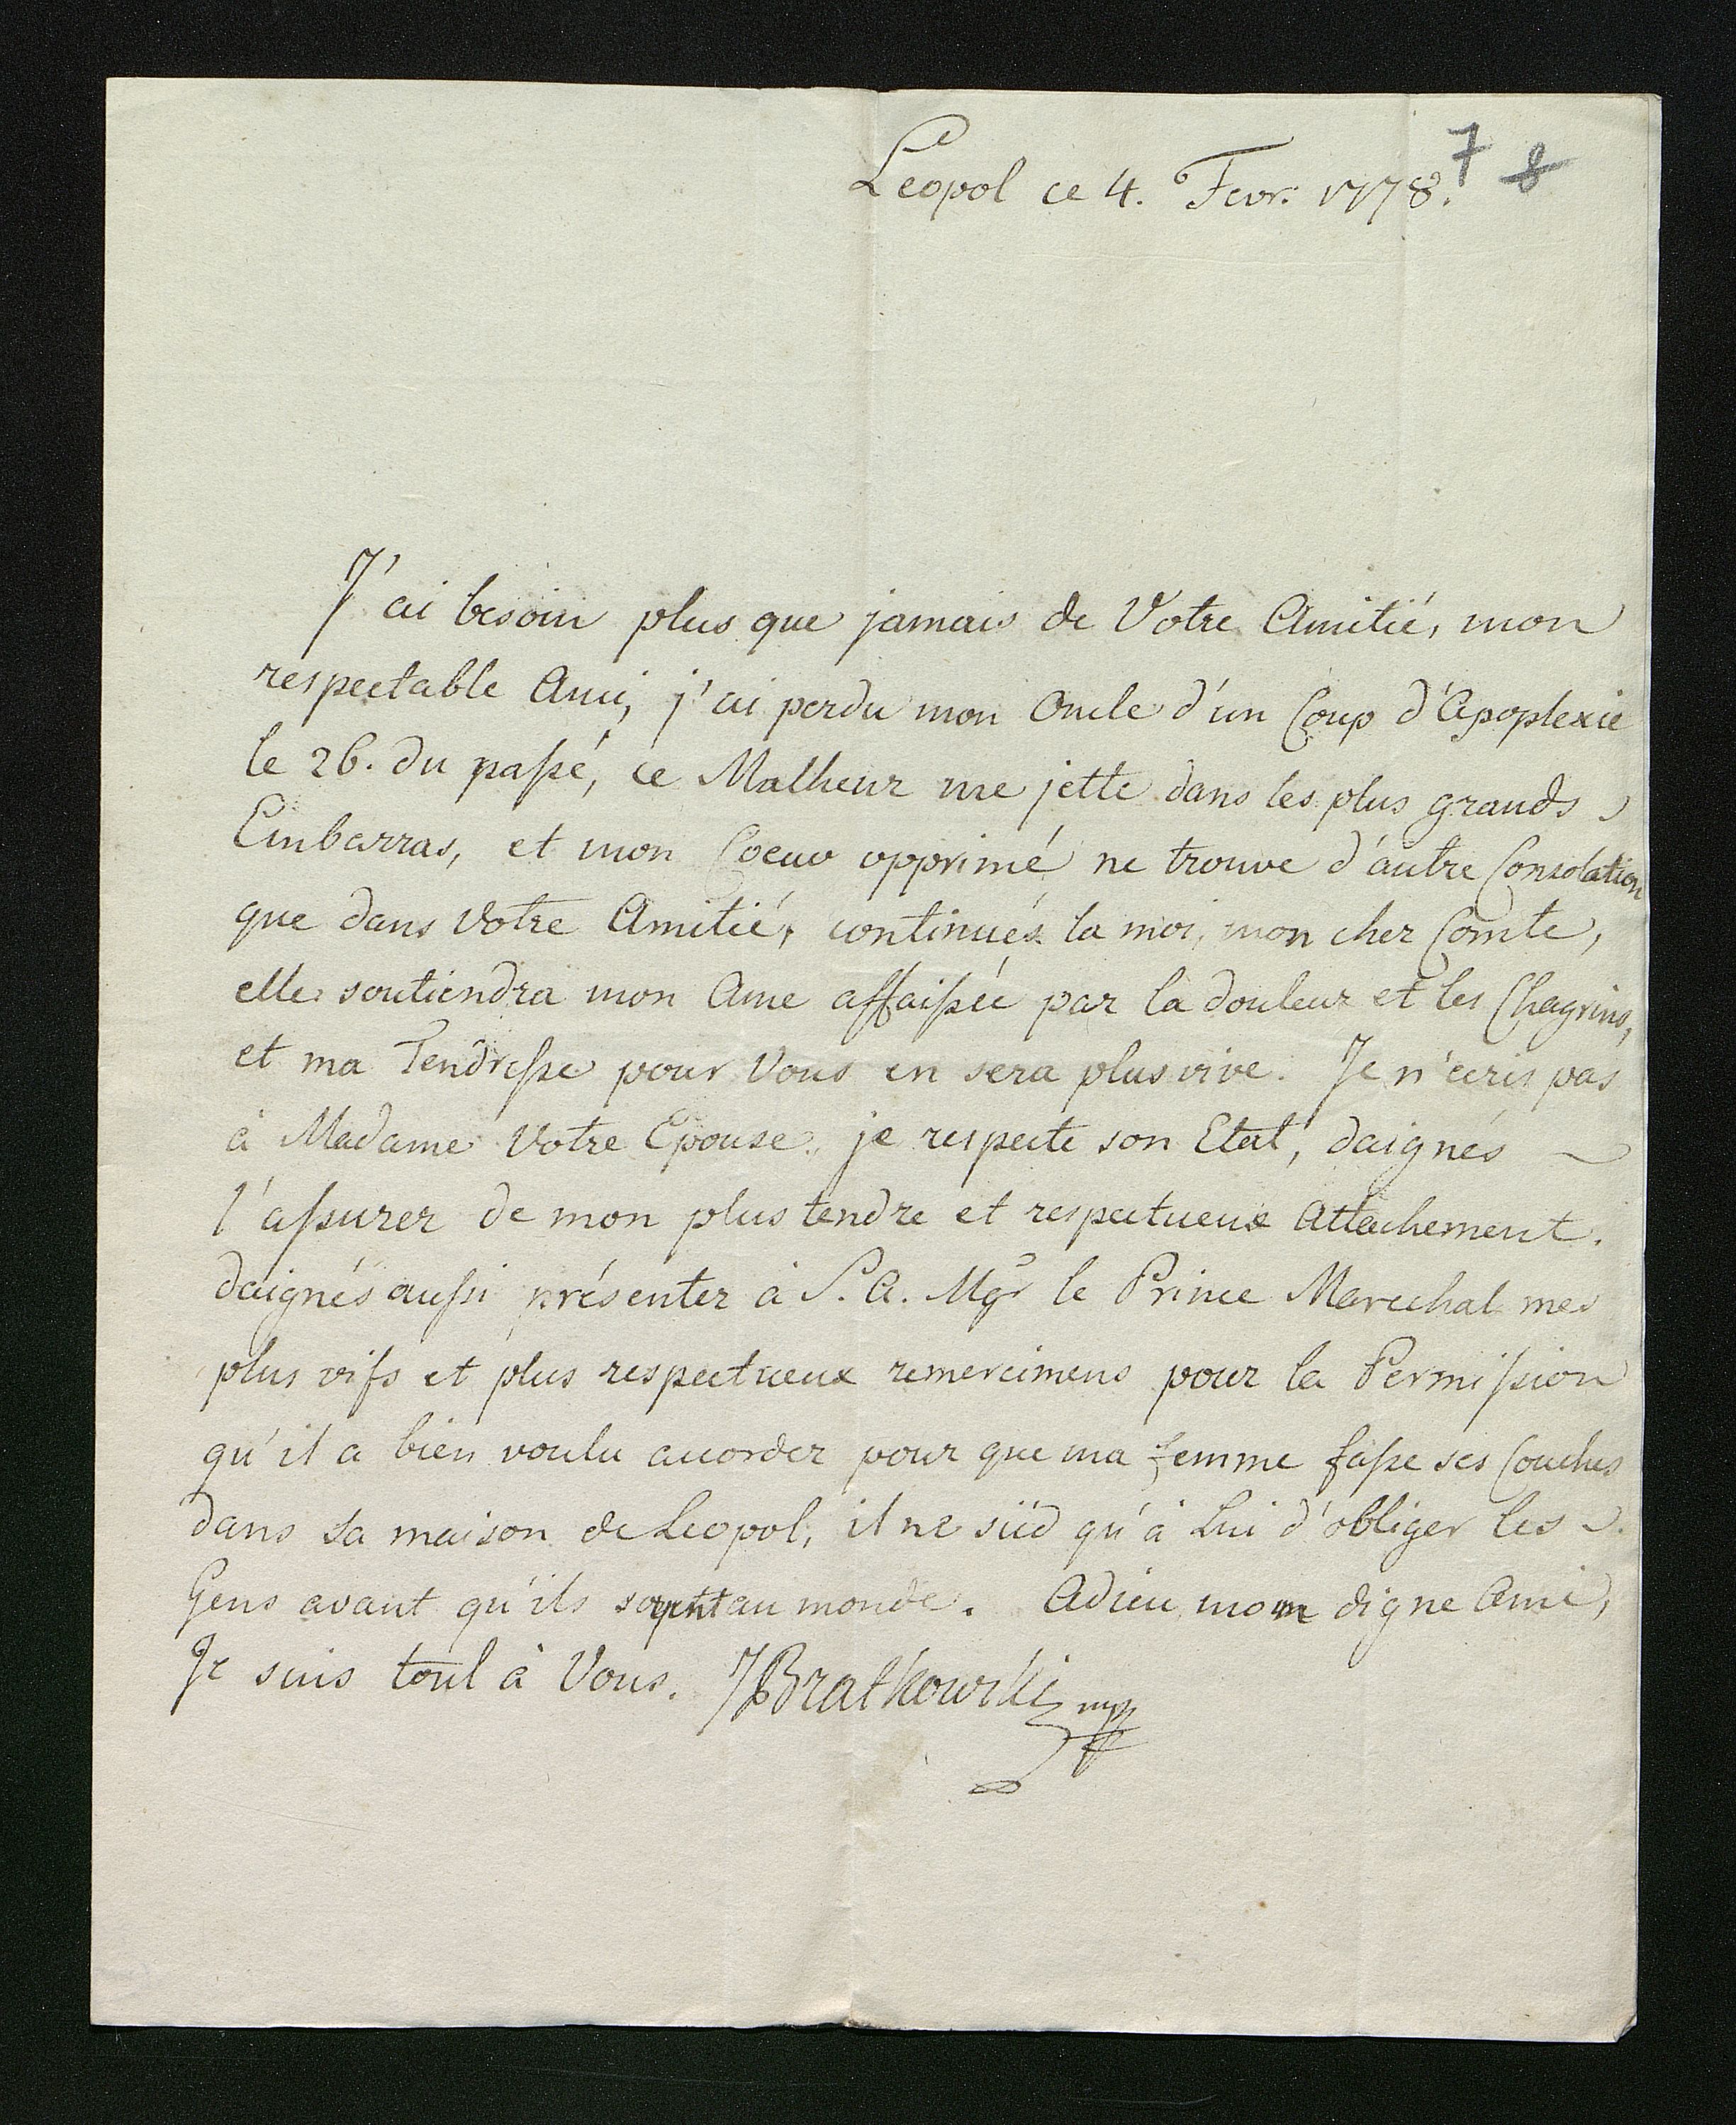 Léopol ce 4. Fevr: 1778. 7 8
J'ai besoin plus que jamais de Votre Amitié, mon
respectable Ami, j'ai perdu mon Oncle d'un Coup d'Apoplexie
le 26. du passé, ce Malheur me jette dans les plus grands
Embarras, et mon Coeur opprimé ne trouve d'autre Consolation
que dans Votre Amitié, continués la moi, mon cher Comte,
elle soutiendra mon Ame affaissée par la douleur et les Chagrins,
et ma Tendresse pour Vous en sera plus vive. Je n'écris pas
à Madame Votre Epouse, je respecte son Etat, daignés
l'assurer de mon plus tendre et respectueux Attachement.
daignés aussi présenter à S. A. Mgr le Prince Marechal mes
plus vifs et plus respectueux remercimens pour la Permission
qu'il a bien voulu accorder pour que ma femme fasse ses Couches
dans sa maison de Leopol, il ne siéd qu'à Lui d'obliger les
Gens avant qu'ils soyent au monde. Adieu mon digne Ami,
Je suis tout à Vous. JBratkowski mp